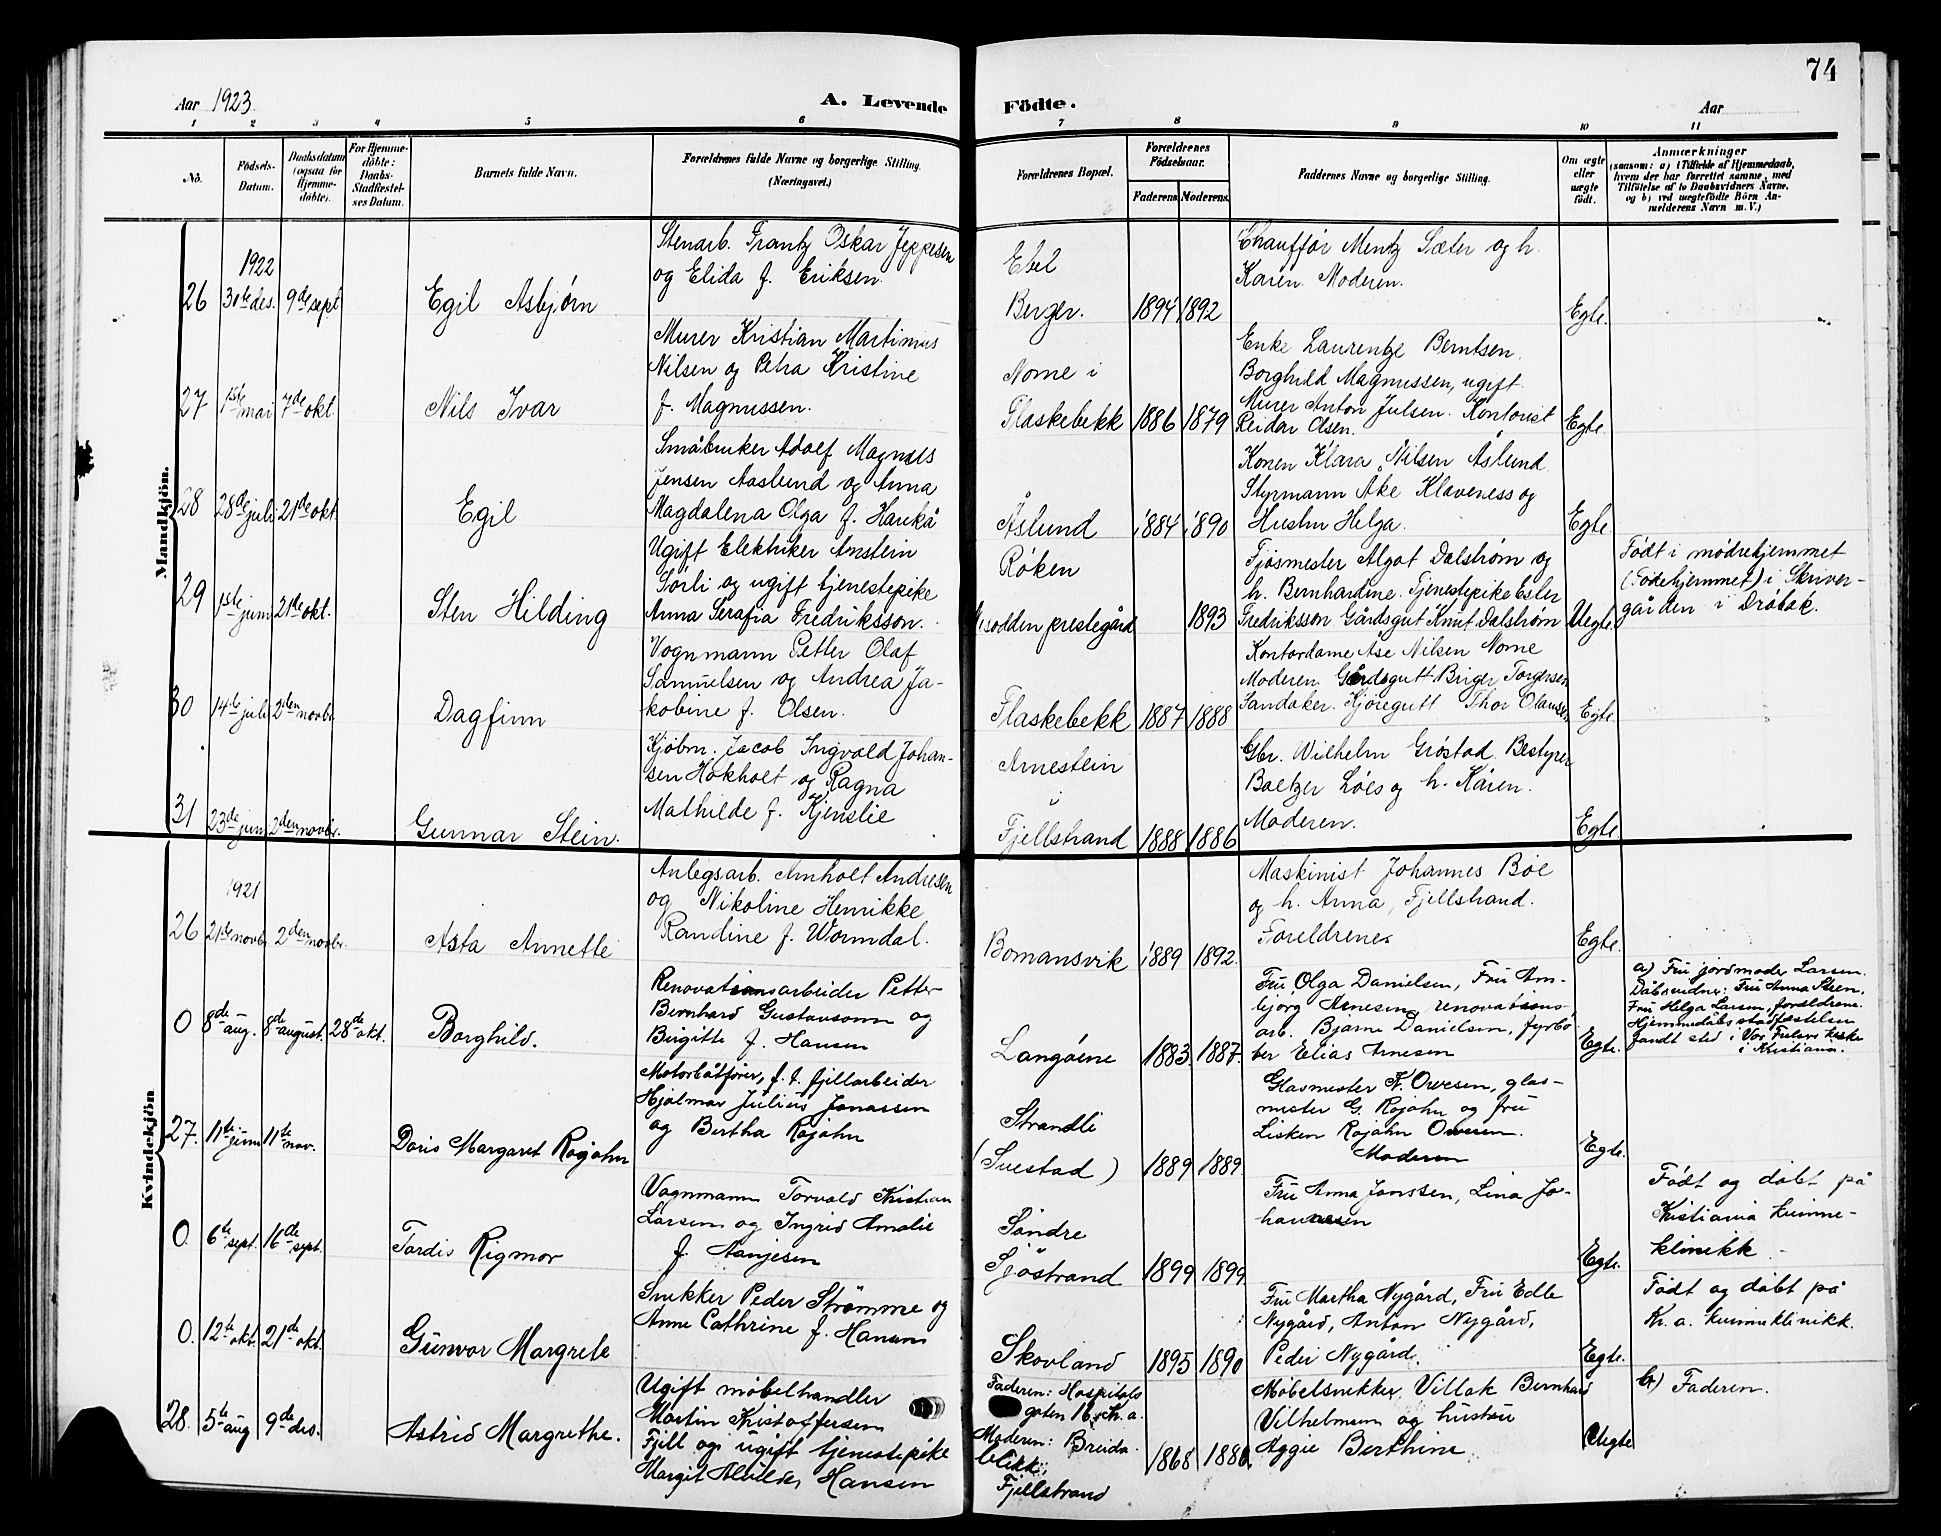 74
Aar 1923.
A. Levende Födte.
Aar
1 2 3 4 5 6 7 8 9 10 11
No.
Födsels-Datum.
Daabsdatum (ogsaa for Hjemmedöbte).
For Hjemmedöbte: Daabs-Stadfæstelses Datum.
Barnets fulde Navn.
Forældrenes fulde Navne og borgerlige Stilling.
(Næringsvei.)
Forældrenes Bopæl.
Forældrenes Födselsaar.
Faderens Moderens
Faddernes Navne og borgerlige Stilling.
Om ægte eller uægte født.
Anmærkninger
(saasom: a) i Tilfælde af Hjemmedaab,
hvem der har forrettet samme, med
Tilföielse af to Daabsvidners Navne,
og b) ved uægtefödte Börn An-
melderens Navn m. V.)
Mandkjön.
Stenarb. Frantz Oskar Jeppesen
og Elida f. Eriksen
1922
26 30te des. 9de sept Egil Asbjørn
Berger. 1894 1892
Chauffør Mentz Sæter og h.
Karen. Moderen.
Egte.
Murer Kristian Martinius
Nilsen og Petra Kristine
f. Magnussen.
27 1ste mai 7de okt. Nils Ivar
Nome i
Flaskebekk 1886 1879
Enke Laurentze Berntsen.
Borghild Magnussen, ugift.
Murer Anton Julsen. Kontorist
Reidar Olsen.
Egte.
Småbruker Adolf Magnus
Jensen Aaslund og Anna
Magdalena Olga f. Haukå
28 28de juli 21de okt. Egil
Åslund 1884 1890
Konen Klara Nilsen Åslund.
Styrmann Åke Klaveness og
Hustru Helga.
Egte.
Ugift Elektriker Arnstein
Sørli og ugift tjenestepike
Anna Serafia Fredriksson.
29 1ste juni 21de okt. Sten Hilding
Røken
Nesodden prestegård 1893
Fjøsmester Algot Dalstrøm og
h. Bernhardine. Tjenestepike Ester
Fredriksson Gårdsgut Knut Dalstrøm
Uegte.
Født i mødrehjemmet
(Fødehjemmet) i Skriver-
gården i Drøbak.
Vognmann Petter Olaf
Samuelsen og Andrea Ja-
kobine f. Olsen.
30 14de juli 2den novbr. Dagfinn
Flaskebekk 1887 1888
Kontordame Åse Nilsen Nome
Moderen. Gårdsgutt Birger Torgersen
Sandaker. Kjøregutt Thor Olaussen
Egte.
Kjøbm. Jacob Ingvald Johan-
sen Hokholt og Ragna
Mathilde f. Kjenslie
31 23de juni 2den novbr. Gunnar Stein.
Arnestein
i
Fjellstrand 1888 1886
Gbr. Wilhelm Grøstad. Bestyrer
Baltzer Løes og h. Kåren.
Moderen.
Egte
Kvindekjön
Anlegsarb. Arnholt Andresen
og Nikoline Henrikke
Randine f. Wormdal.
1921
26 21de novbr. 2den novbr. Asta Annette
Bomansvik 1889 1892.
Maskinist Johannes Bøe
og h. Anna, Fjellstrand.
Foreldrene
Egte.
Renovationsarbeider Petter
Bernhard Gustavsonn og
Birgitte f. Hansen
0 8de aug. 8de august. 28de okt. Borghild.
Langøene 1883. 1887.
Fru Olga Danielsen, Fru Am-
bjørg Arnesen, renovations-
arb. Bjarne Danielsen, fyrbø-
ter Elias Arnesen
Egte.
a) Fru jordmoder Larsen.
Dåbsvidner: Fru Anna Steen,
Fru Helga Larsen, forældrene.
Hjemmedåbs stadfæstelsen
fandt sted i Vor Frelsers kirke
i Kristiania.
Motorbåtfører, f. t. fjellarbeider
Hjalmar Julius Jonassen
og Bertha Rojahn
27. 11te juni 11te nov. Doris Margaret Rojahn
Strandli
(Svestad) 1889 1889
Glasmester F. Owesen, glas-
mester G. Rojahn og fru
Lisken Rojahn Owesen.
Moderen
Egte.
Vognmann Torvald Kristian
Larsen og Ingrid Amalie
f. Aanjesen
0. 6te sept. 16de sept. Tordis Rigmor
Søndre
Sjøstrand 1899 1899
Fru Anna Janssen, Lina Jo-
hannesen
Egte.
Født og døbt på
Kristiania kvinne-
klinikk.
Snekker Peder Strømme og
Anne Cathrine f. Hansen
0. 12te okt. 21de okt. Gunvor Margrete
Skovland 1895 1890
Fru Martha Nygård, Fru Edle
Nygård, Anton Nygård,
Peder Nygård.
Egte.
Født og døbt på
Kr.a. kvinneklinikk.
Ugift møbelhandler
Martin Kristoffersen
Fjell og ugift tjenestepike
Margit Alvilda Hansen
28. 5te aug 9de des. Astrid Margrethe.
Faderen: Hospitals
gaten 16, Kr.a.
Moderen: Breida-
blikk,
Fjellstrand
1868 1886
Møbelsnekker Villak Bernhard
Vilhelmsen og hustru
Aggie Berthine
Uegte
b) Faderen.